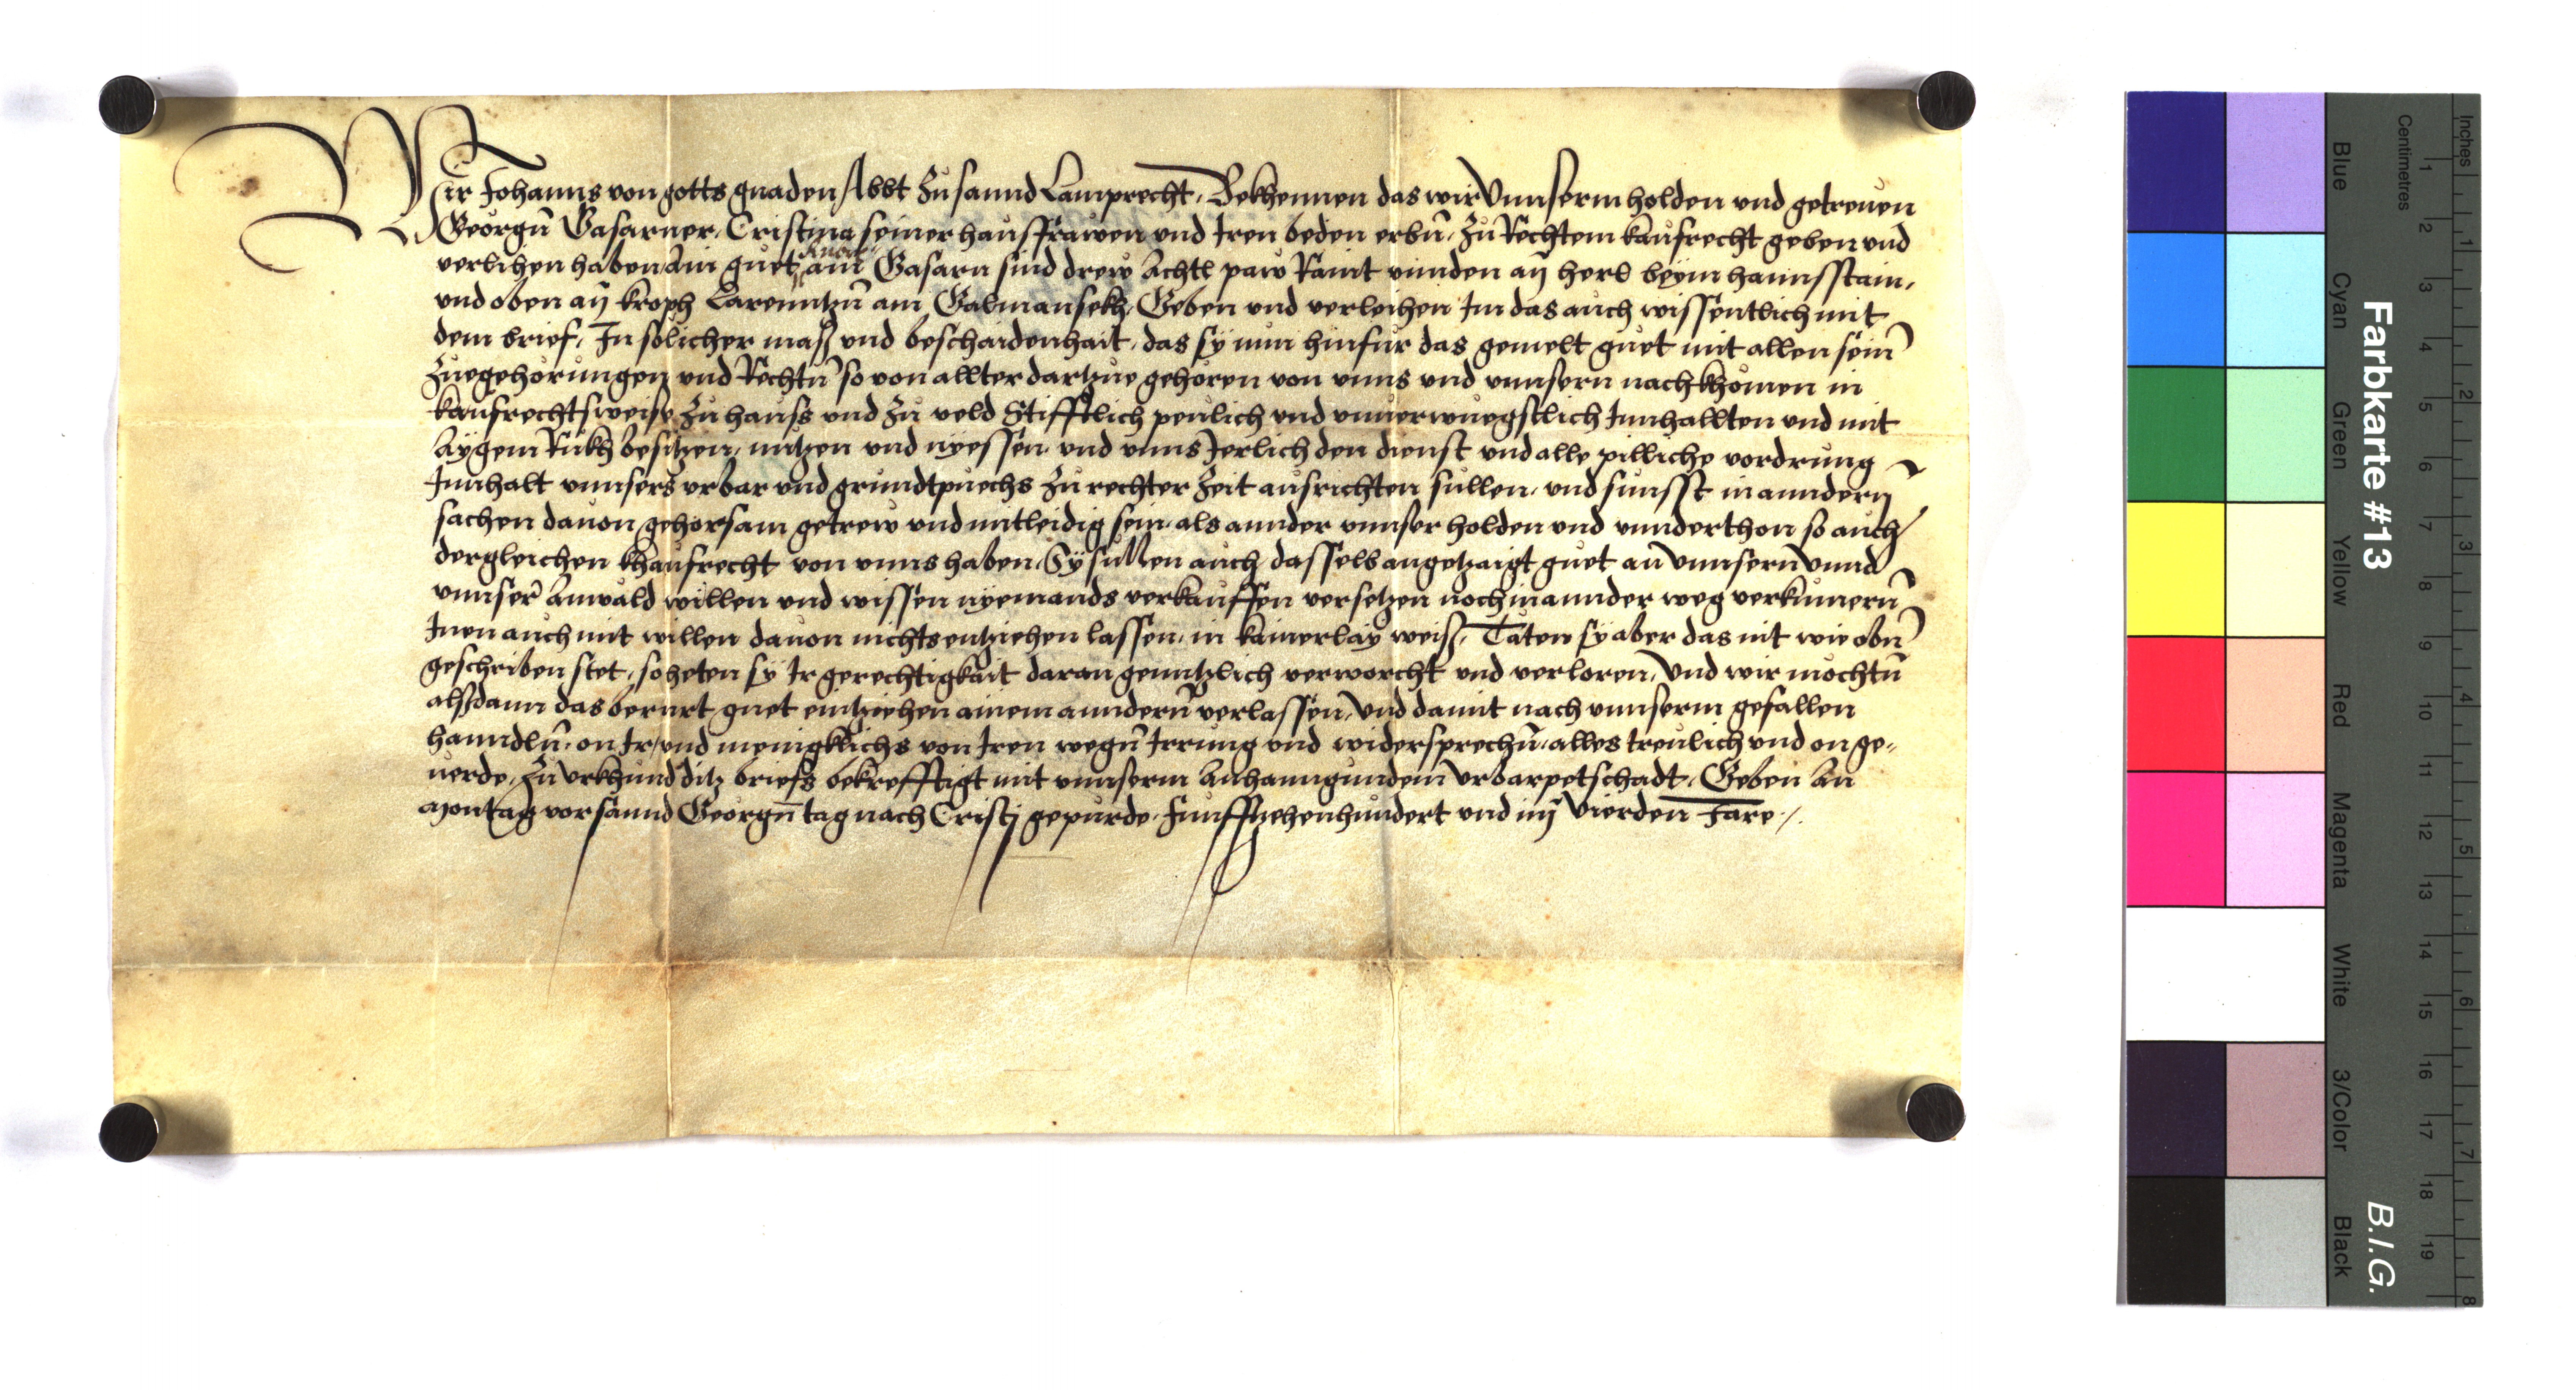 Wir Johanns von gotts gnaden Abbt zu sannd Lamprecht, Bekhennen das wir Vnnserm holden vnd getreuen
Georgn̄ Gasarner, Cristina seiner hausfrawen vnd Iren beden erbn̄, zu Rechtem kaufrecht geben vnd
verlihen haben, ain guet am Gasarn sind drew achtl paw Raint vnnden an herb beym hannsstain,
vnd oben an kroph Larenntzn̄ am Galmansekh, Geben vnd verleihen Im das auch wissentlich mit
dem brief, In sölicher mass vnd beschaidenhait, das sy nun hinfur das gemelt guet mit allen sein̄
zuegehörungen vnd Rechtn̄ so von allter dartzue gehoren von vnns vnd vnnsern nachkhomen in
kaufrechtsweise zu hauss vnd zu veld Stifftlich peulich vnd vnuerwuegstlich Innhallten vnd mit
aygem Rukh besitzen, nutzen vnd nyessen, vnd vnns Jerlich den dienst vnd alle pilliche vordrung
Innhalt vnnsers vrbar vnd grundtpuechs zu rechter zeit ausrichten sullen, vnd sunsst in anndern
sachen dauon gehorsam getrew vnd mitleidig sein, als annder vnnser holden vnd vnnderthon so auch
dergleichen khaufrecht von vnns haben, Sy sullen auch dasselb angetzaigt guet an vnnsern vnnd
vnnser̄ anwäld willen vnd wissen nyemands verkauffen versetzen noch in annder weg verkumern̄
Inen auch mit willen dauon nichts entziehen lassen, in kainerlay weiss, Täten sy aber das nit wie obn̄
geschriben stet, so heten sy Ir gerechtigkait daran genntzlich verworcht vnd verloren, Vnd wir mochtn̄
alssdann das berurt guet eintziehen ainem anndern̄ verlassen, vnd damit nach vnnserm gefallen
hanndln̄, on Ir, vnd menigklichs von Iren wegn̄ Irrung vnd widersprechn̄, alles treulich vnd on ge-
uerde, Zu Vrkhund ditz briefs bekrefftigt mit vnnserm anhanngundem vrbarpetschadt, Geben an
Montag vor sannd Georgn̄ tag nach Cristj gepurde, funfftzehenhundert vnd im Vierden Jare.
Farbkarte #13
B.I.G.
Centimetres
Inches
Blue
Cyan
Green
Yellow
Red
Magenta
White
3/Color
Black
1 2 3 4 5 6 7 8 9 10 11 12 13 14 15 16 17 18 19
1 2 3 4 5 6 7 8